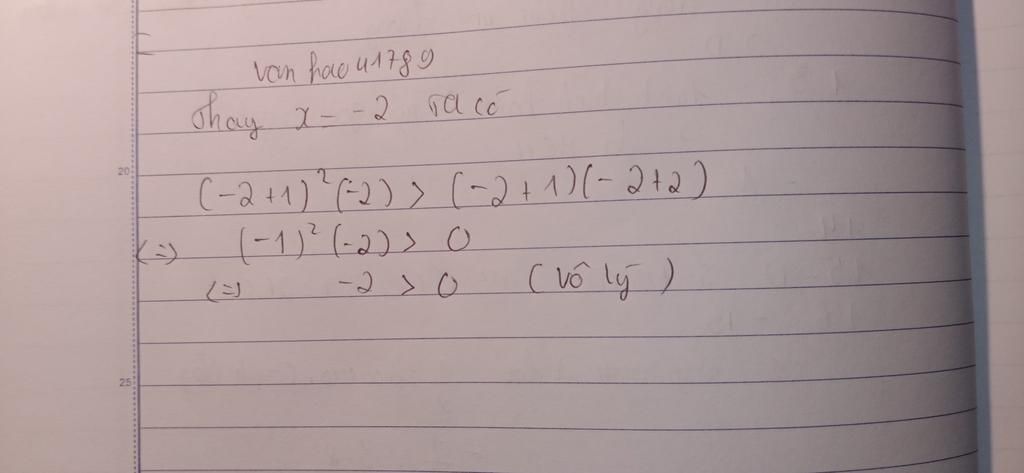 van hao 41789
Thay x = -2 ta có
20
(-2+1)²(-2) > (-2+1)(-2+2)
<=> (-1)²(-2) > 0
<=> -2 > 0 (Vô lý)
25